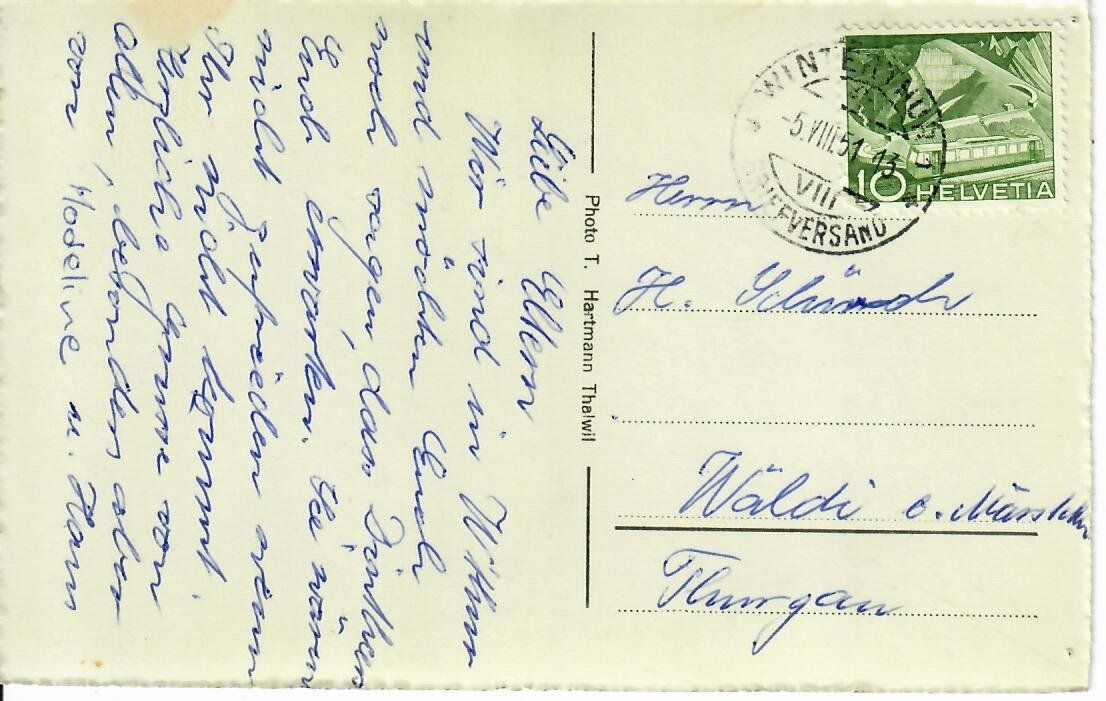 Liebe Eltern
Wir sind in W'thur
und möchten Euch
noch sagen, dass
Euch erwarten. Sie wären
nicht zufrieden wenn
Ihr nicht kommt.
Herzliche Grüsse von
allen, besonders aber
von Madeline u. Hans
Photo T. Hartmann Thalwil
WINTERTHUR 1
-5.VIII51-13
VIII
BRIEFVERSAND
10 HELVETIA
Herrn
H. Schürch
Wäldi
Thurgau